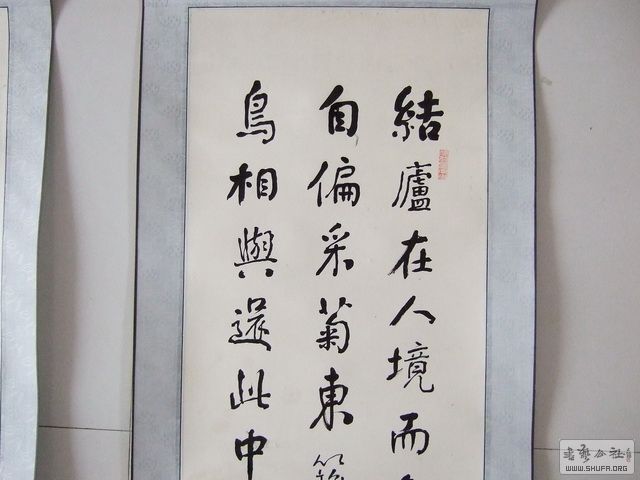 結廬在人境而
自偏采菊東籬
鳥相與還此中
書藝公社
WWW.SHUFA.ORG